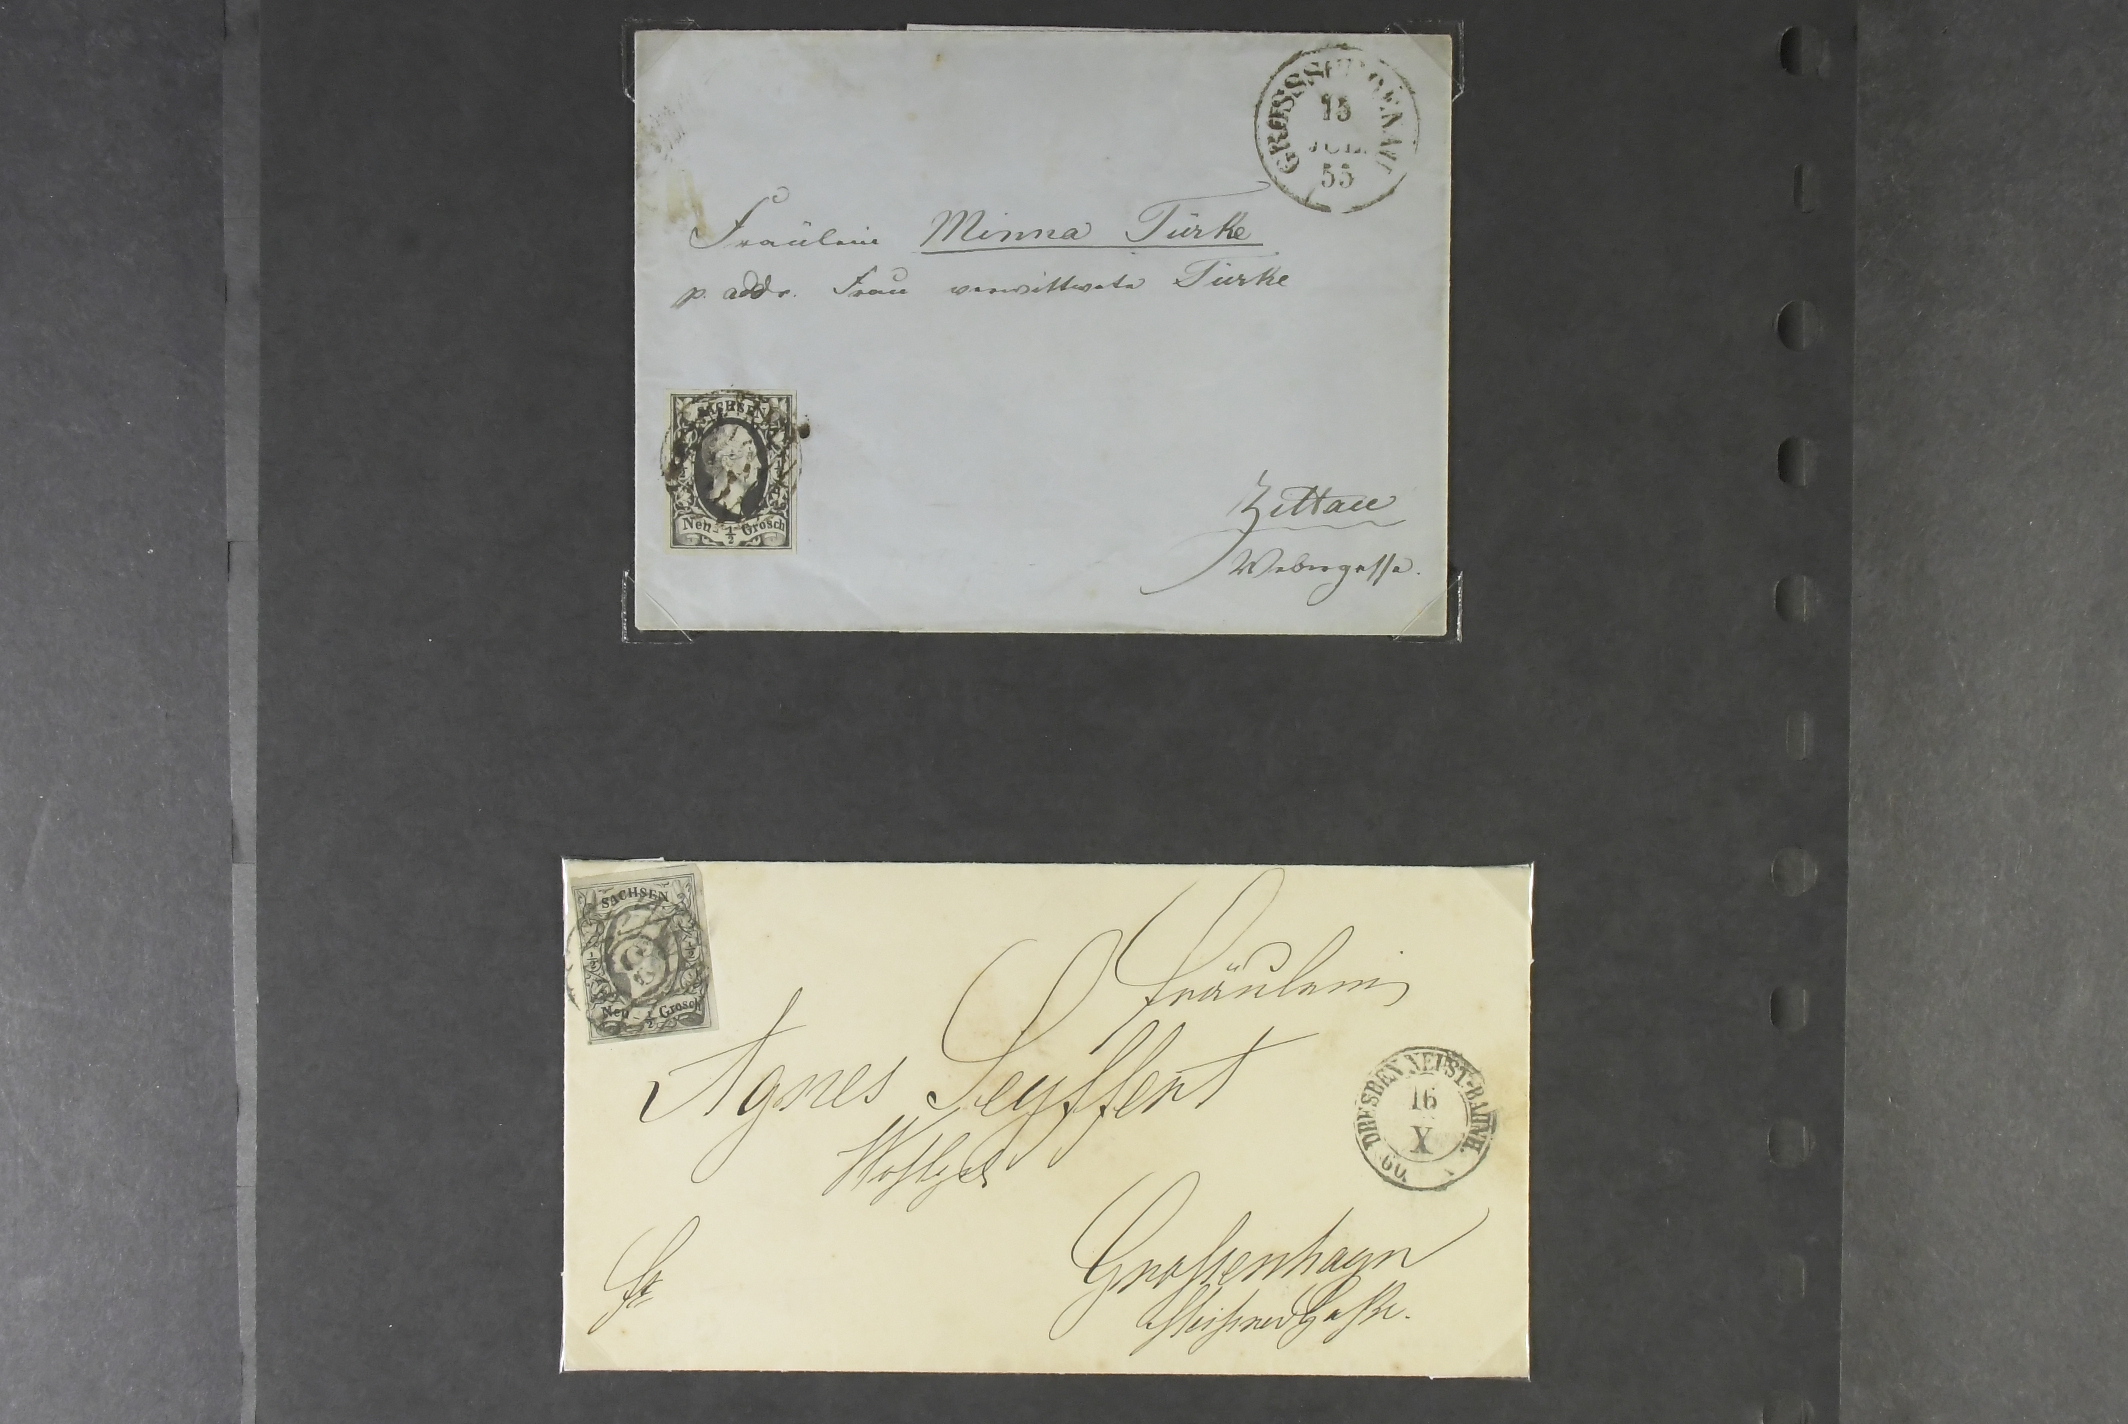 GROSSSCHOENAU
15
JUL.
55
Fräulein Minna Türke
p. addr. Frau verwittwete Türke
SACHSEN
Neu- ½ Grosch
Zittau
Webergasse.
SACHSEN
½ ½
Neu- ½ Grosch
Fräulein
Agnes Seyffert
Wohlgeb
DRESDEN NEUST-BAHNH.
16
X
60.
Fr
Großenhayn
Meißner Gasse.